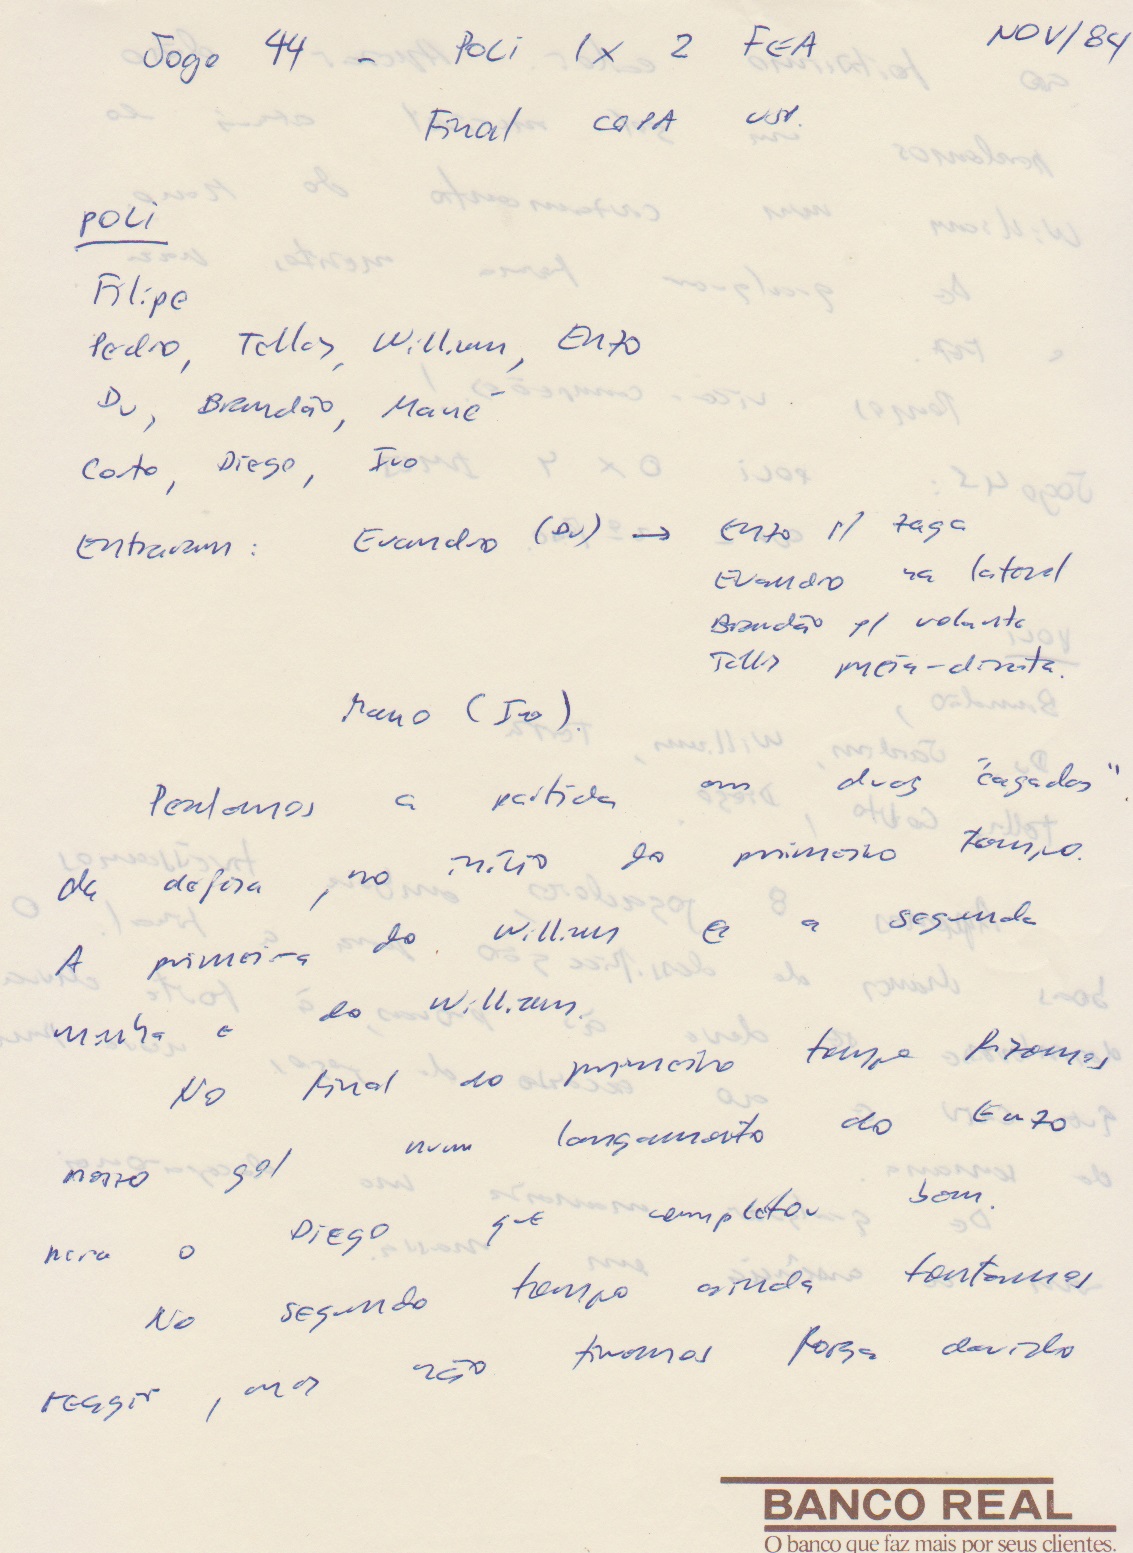 Jogo 44 - POLI 1 x 2 FEA NOV/84
Final COPA USP.
POLI
Filipe
Pedro, Telles, William, Enzo
Du, Brandão, Mané
Couto, Diego, Ivo
Entraram: Evandro (Du) → Enzo p/ zaga
Evandro na lateral
Brandão p/ volante
Telles meia-direita.
Mano (Ivo).
Perdemos a partida em duas "cagadas".
da defesa, no início do primeiro tempo.
A primeira do William e a segunda
minha e do William.
No final do primeiro tempo fizemos
nosso gol num lançamento do Enzo
para o Diego que completou bem.
No segundo tempo ainda tentamos
reagir, mas não tivemos força devido
BANCO REAL
O banco que faz mais por seus clientes.